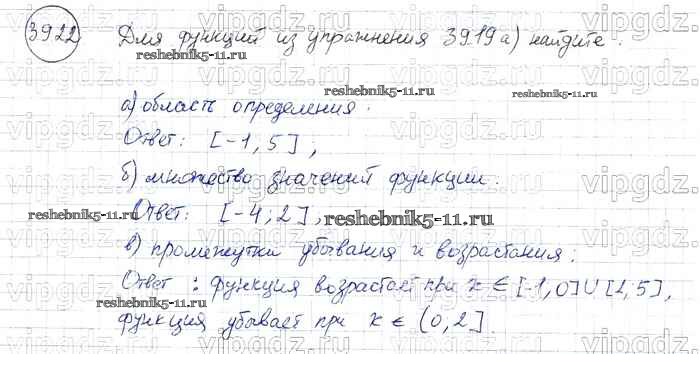 3922 Для функций из упражнения 3919 а) найдите:
а) область определения.
Ответ: [-1, 5],
б) множество значений функции.
Ответ: [-4; 2],
в) промежутки убывания и возрастания:
Ответ: функция возрастает при x ∈ [-1, 0] ∪ [2, 5],
функция убывает при x ∈ (0, 2].
reshebnik5-11.ru
reshebnik5-11.ru
reshebnik5-11.ru
reshebnik5-11.ru
reshebnik5-11.ru
vipgdz.ru